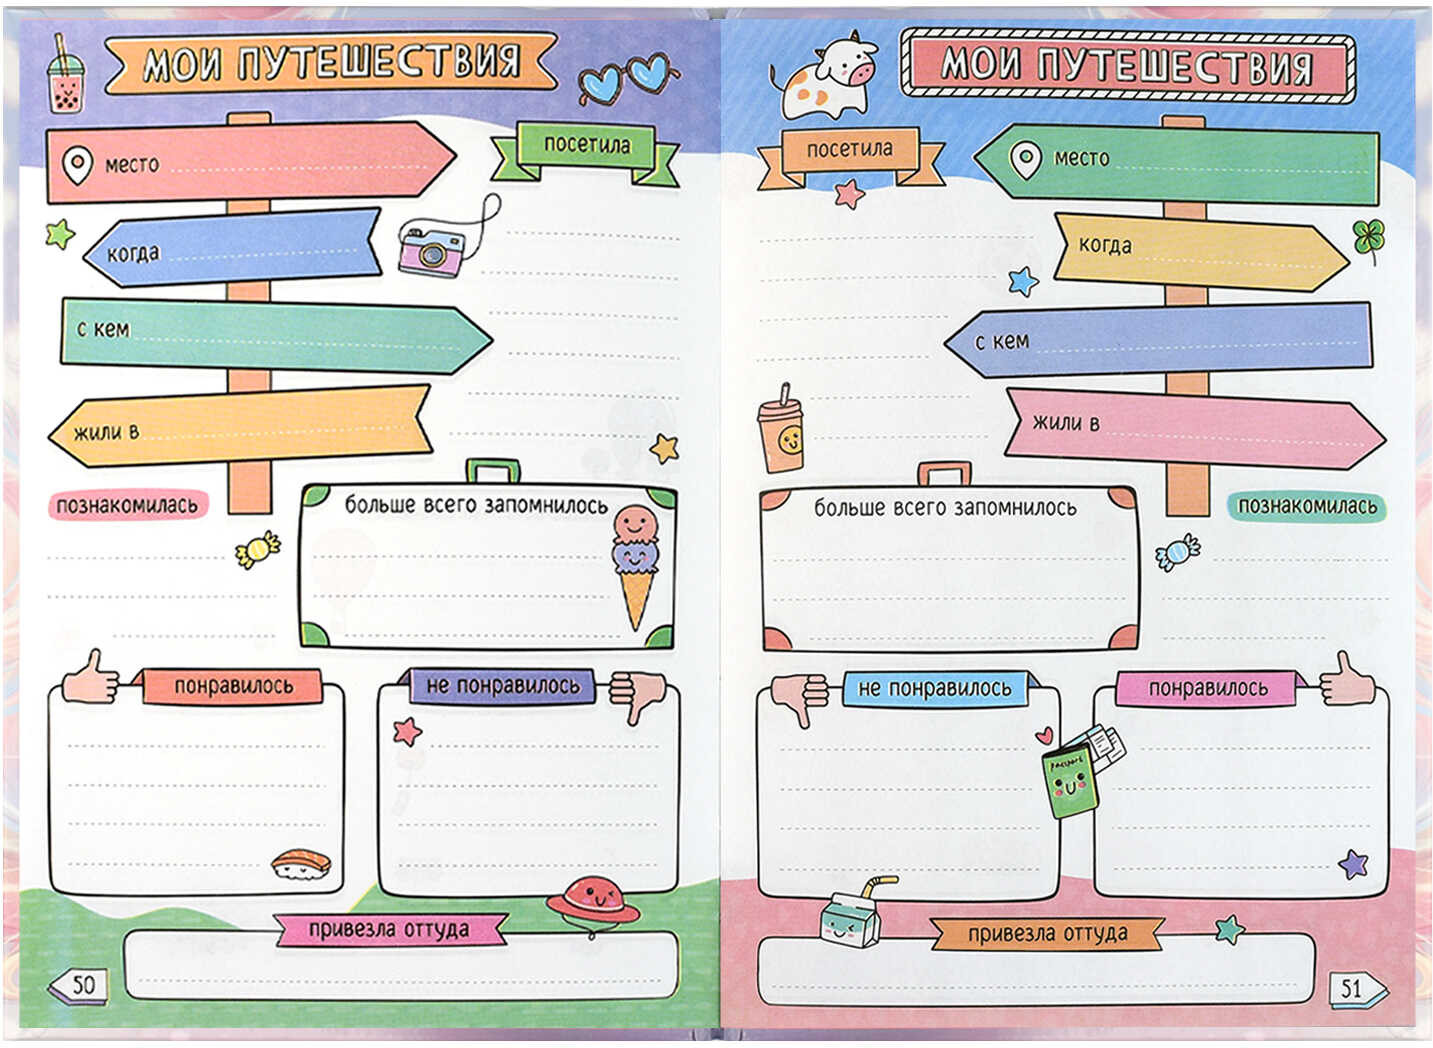 МОИ ПУТЕШЕСТВИЯ
место
посетила
когда
с кем
жили в
познакомилась
больше всего запомнилось
понравилось
не понравилось
привезла оттуда
50
МОИ ПУТЕШЕСТВИЯ
посетила
место
когда
с кем
жили в
больше всего запомнилось
познакомилась
не понравилось
понравилось
passport
привезла оттуда
51